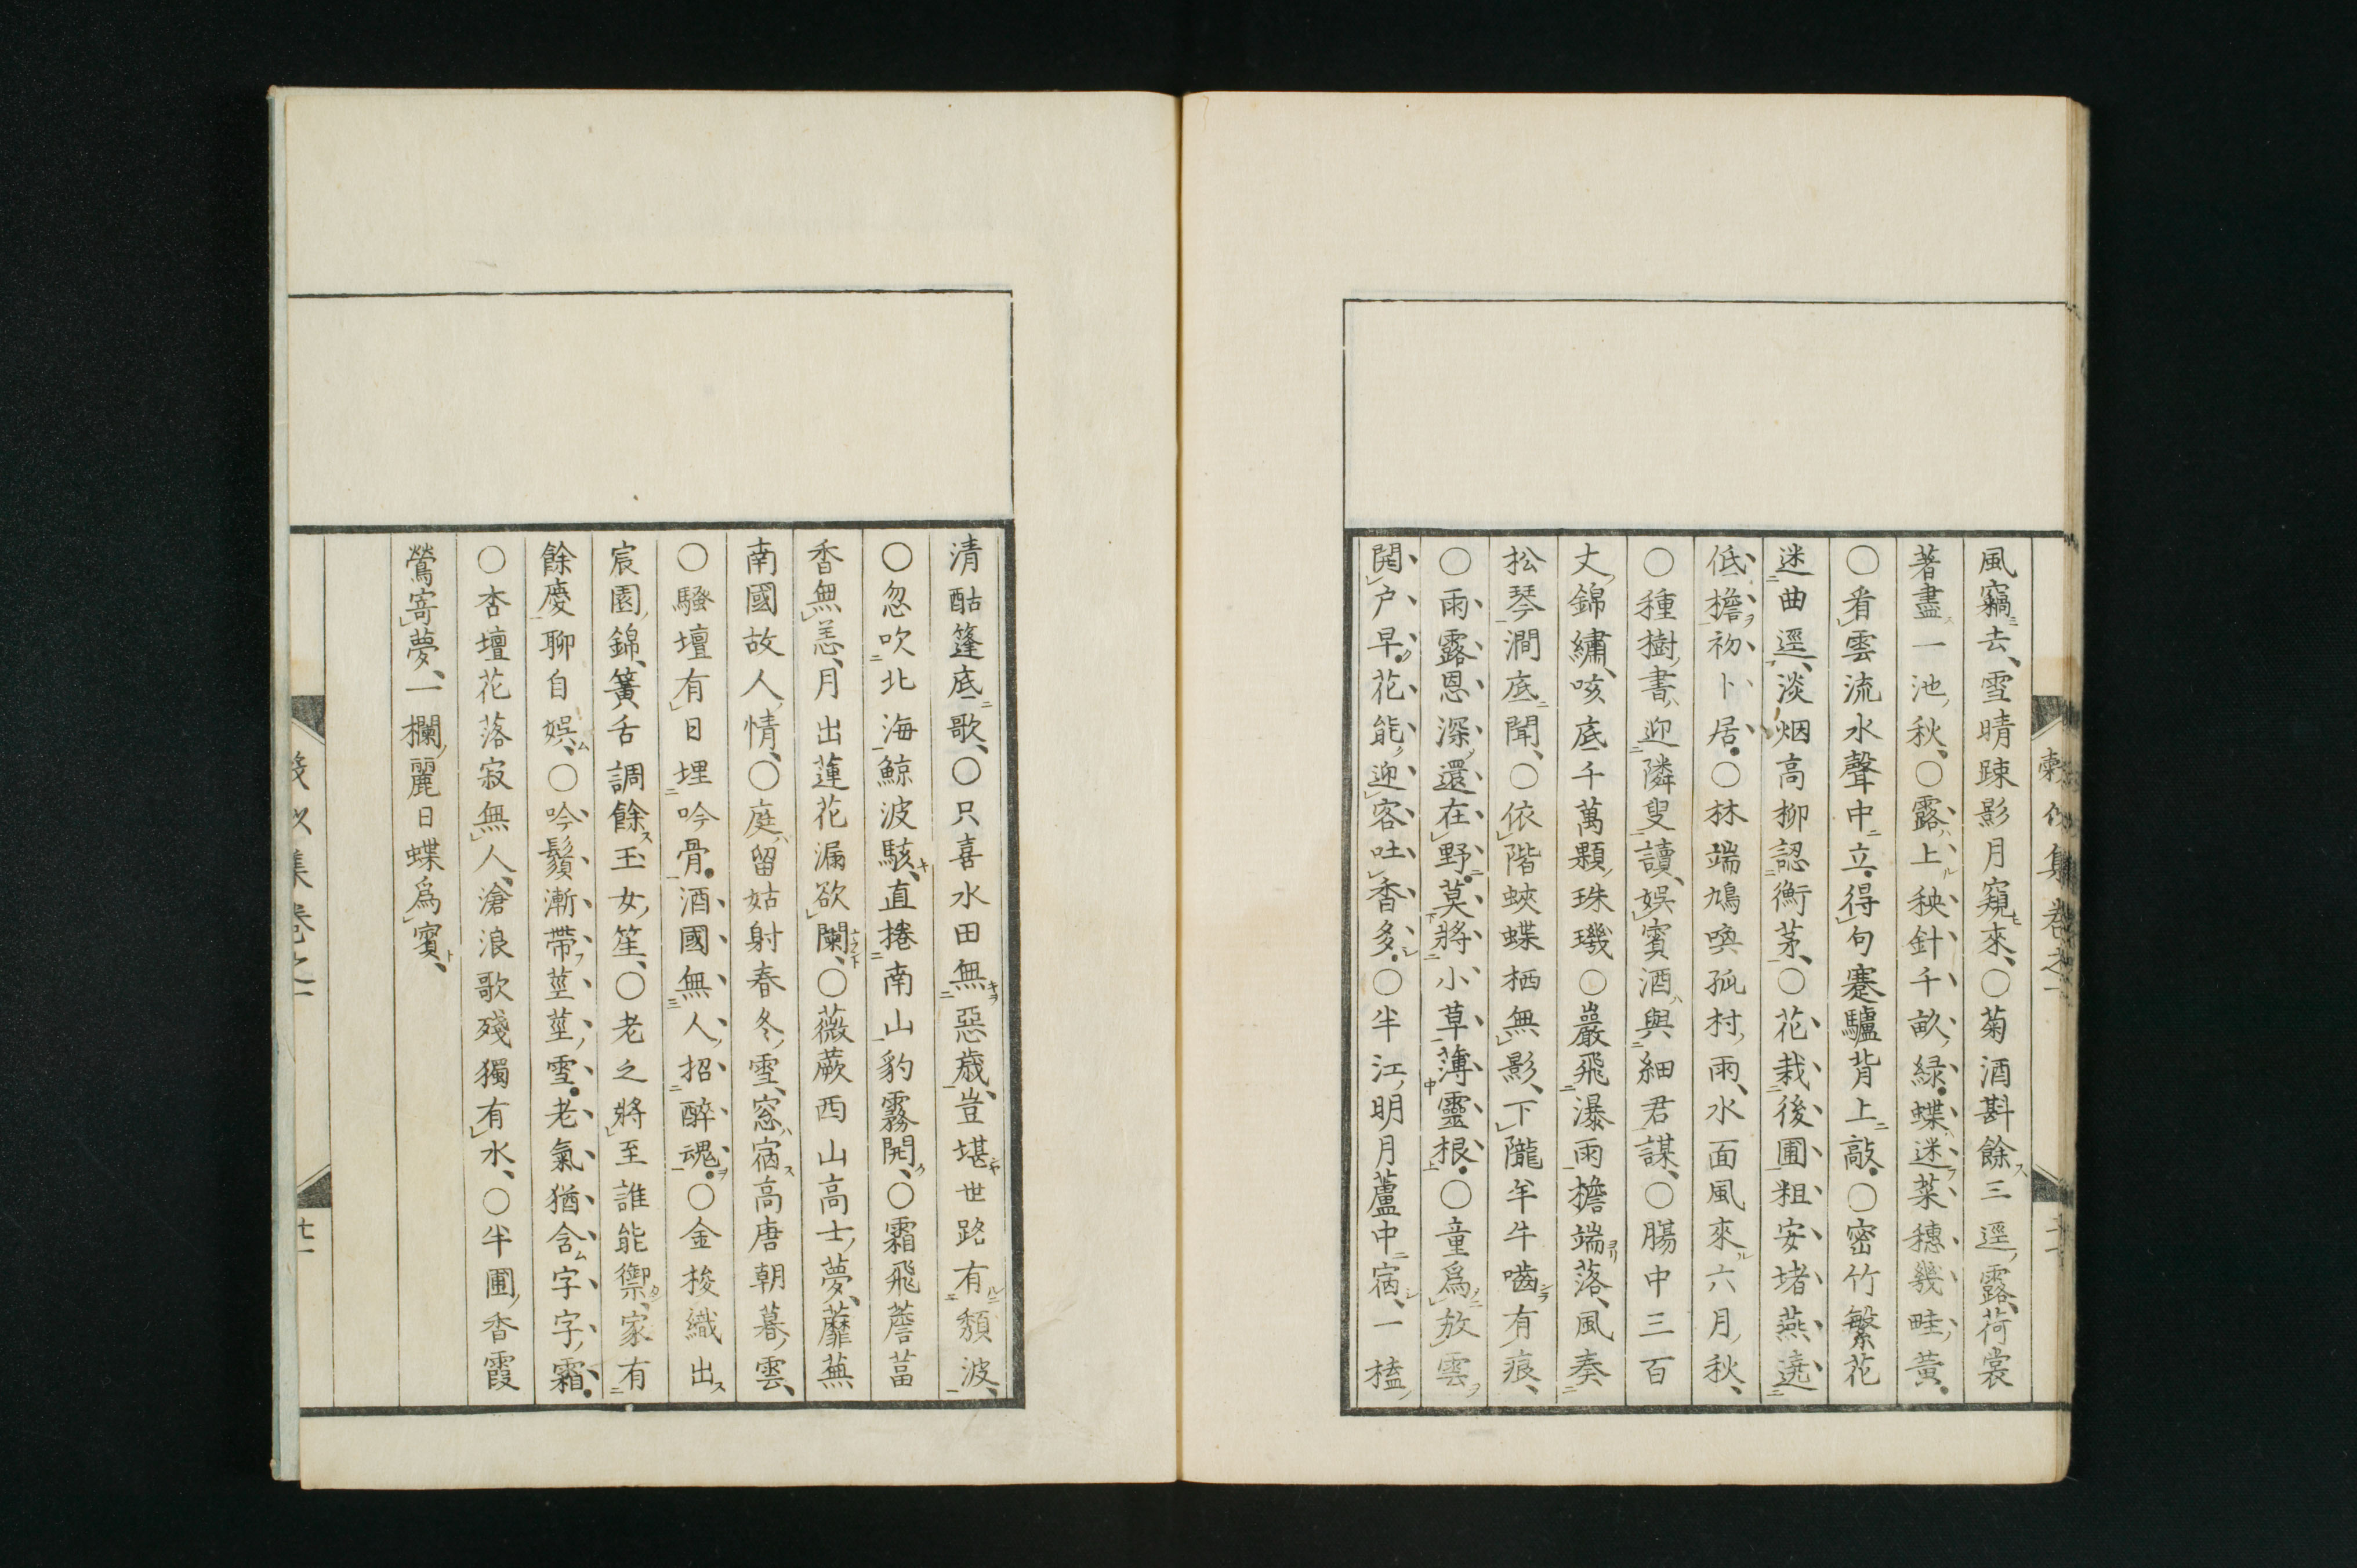 風竊去雪晴踈影月窺來○菊酒斟餘三逕露荷裳
著盡一池秋○露上秧針千畝緑蝶迷菜穗幾畦黃
○看雲流水聲中立得句蹇驢背上敲○密竹繁花
迷曲逕淡烟高柳認衡茅○花栽後圃粗安堵燕遶
低檐初卜居○林端鳩喚孤村雨水面風來六月秋
○種樹書迎隣叟讀娯賓酒與細君謀○腸中三百
丈錦繡咳底千萬顆珠璣○巖飛瀑雨檐端落風奏
松琴澗底聞○依階蛺蝶栖無影下隴羊牛嚙有痕
○雨露恩深還在野莫將小草薄靈根○童爲放雲
開戶早花能迎客吐香多○半江明月蘆中宿一榼
清酤篷底歌○只喜水田無惡歳豈堪世路有頽波
○忽吹北海鯨波駭直捲南山豹霧開○霜飛薝蔔
香無恙月出蓮花漏欲闌○薇蕨西山高士夢蘼蕪
南國故人情○庭留姑射春冬雪窓宿高唐朝暮雲
○騷壇有日埋吟骨酒國無人招醉魂○金梭織出
宸園錦簧舌調餘玉女笙○老之將至誰能禦家有
餘慶聊自娯○吟鬚漸帶莖莖雪老氣猶含字字霜
○杏壇花落寂無人滄浪歌殘獨有水○半圃香霞
鶯寄夢一欄麗日蝶爲賓
集卷之一